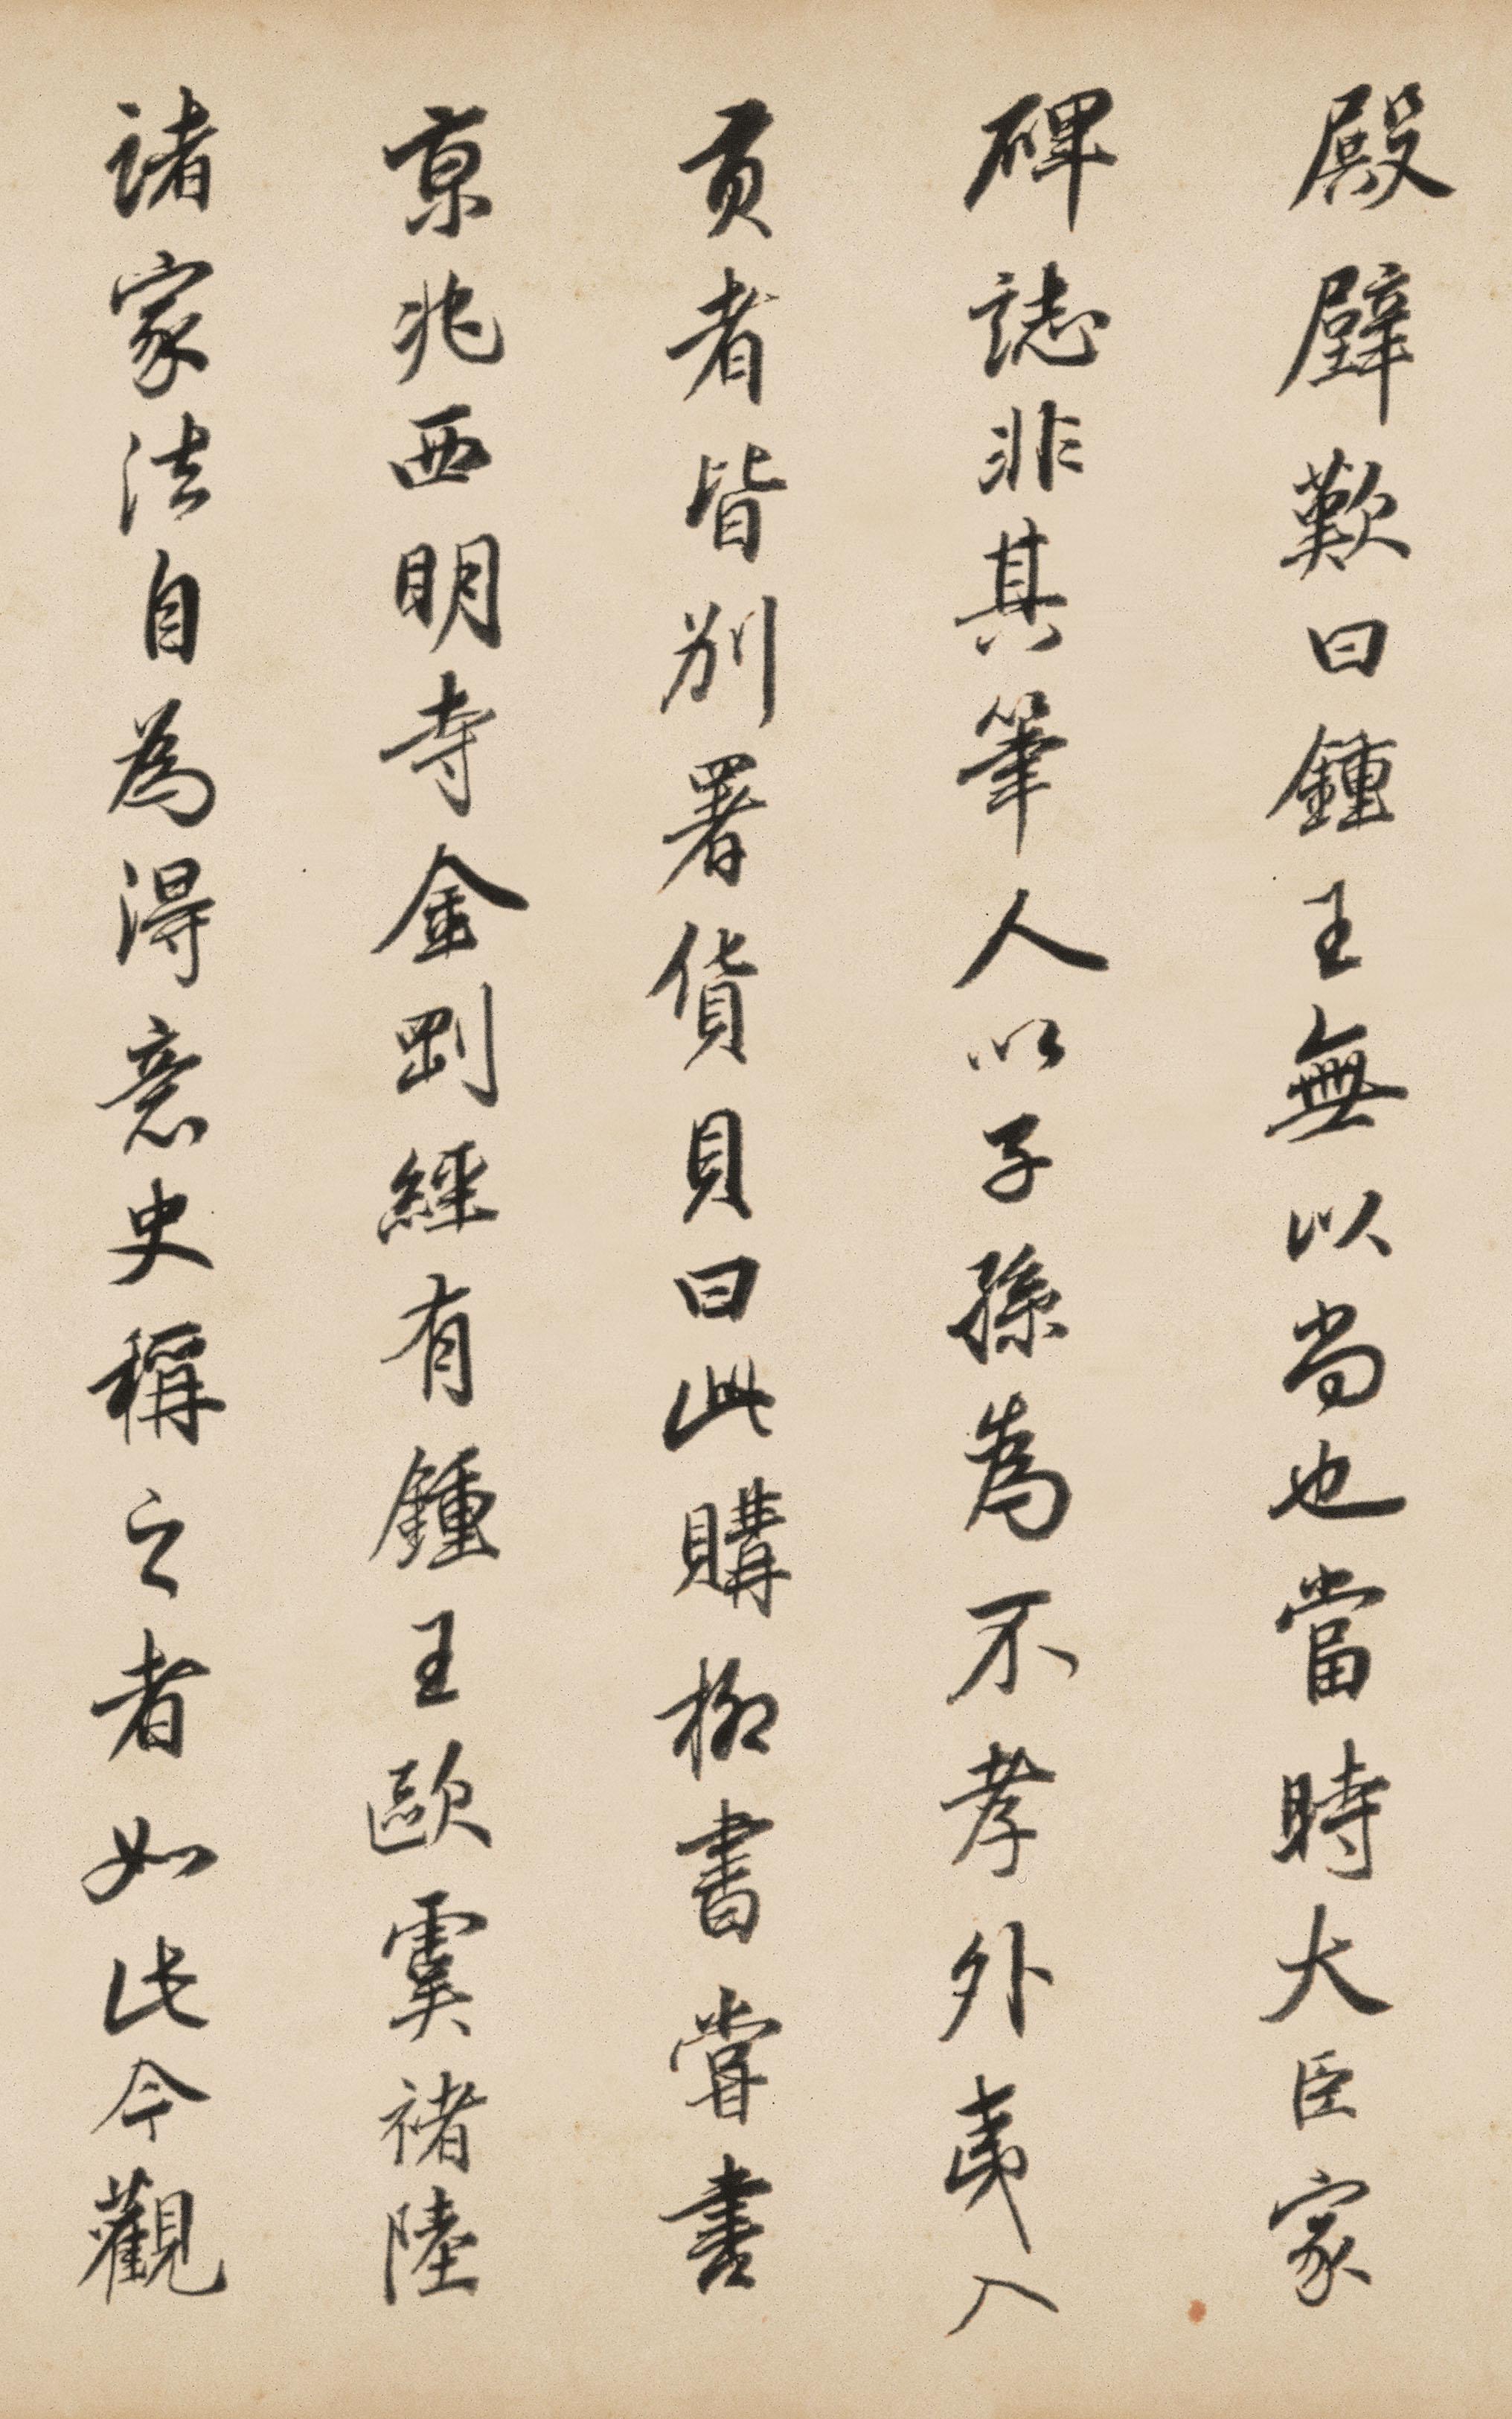 殿壁歎曰鍾王無以尚也當時大臣家
碑誌非其筆人以子孫為不孝外夷入
貢者皆別署貨貝曰此購柳書嘗書
京兆西明寺金剛經有鍾王歐虞褚陸
諸家法自為得意史稱之者如此今觀